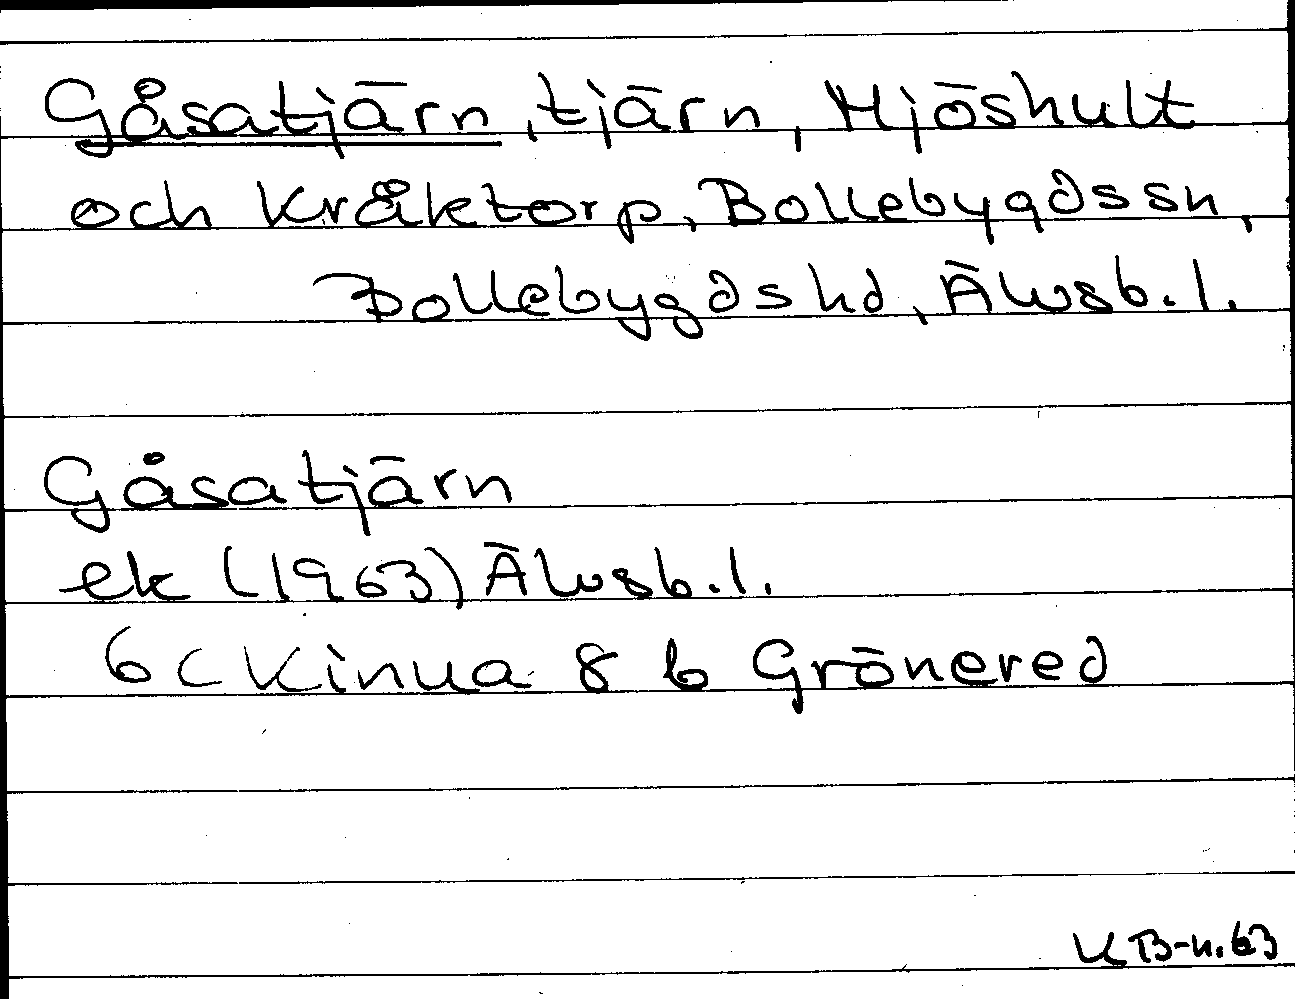 Gåsatjärn, tjärn, Hjöshult
och Kråktorp, Bollebygdssn,
Bollebygdshd, Älvsb.l.
Gåsatjärn
ek (1963) Älvsb.l.
6 C Kinna 8 b Grönered
KTB-n.63